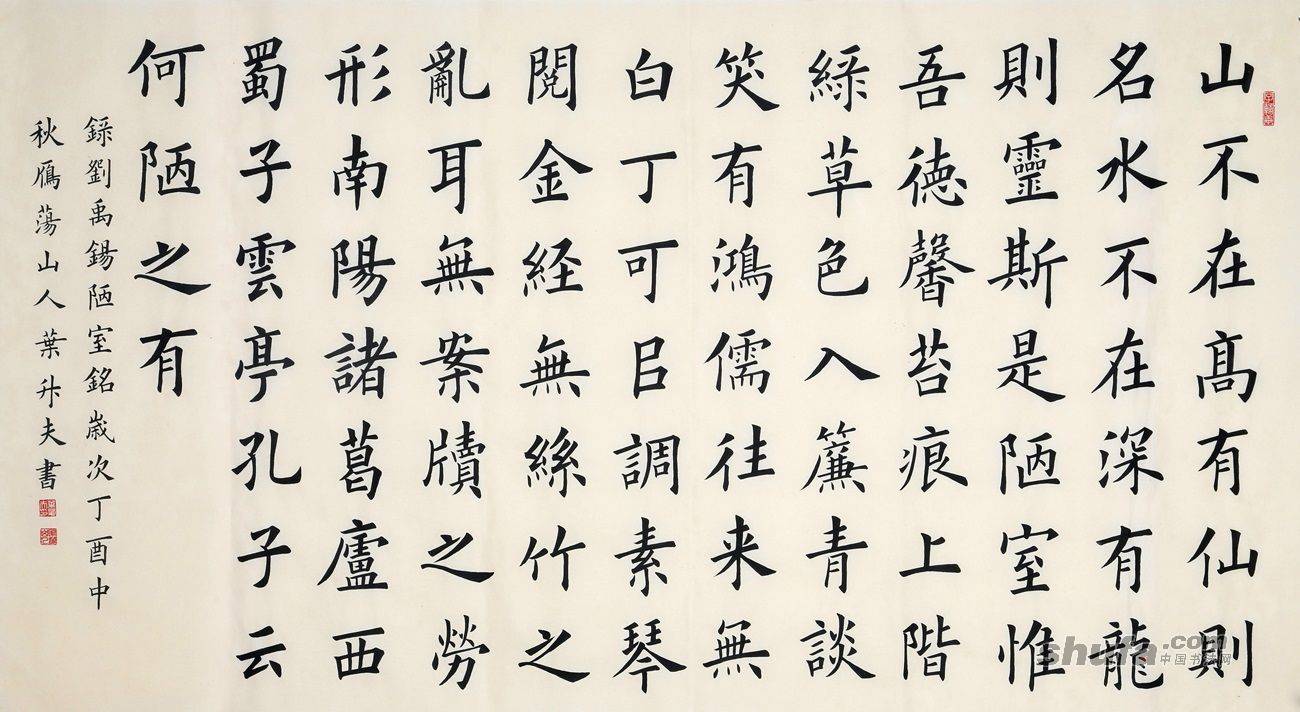 山不在高有仙則
名水不在深有龍
則靈斯是陋室惟
吾德馨苔痕上階
綠草色入簾青談
笑有鴻儒往来無
白丁可㠯調素琴
閱金経無絲竹之
亂耳無案牘之勞
形南陽諸葛廬西
蜀子雲亭孔子云
何陋之有
錄劉禹錫陋室銘歲次丁酉中
秋雁蕩山人葉升夫書
shufa.com
中国书法网